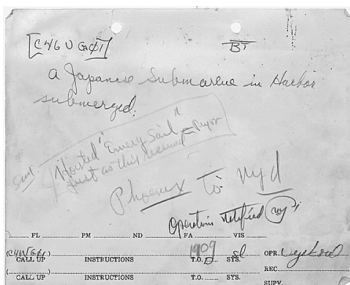 [C46 U G01] BT
a Japanese Submarine in Harbor
submerged.
Hoisted "Emery Sail"
just as this
Phoenix to: Nyd
Operations notified
FL PM ND FA VIS
1909
CALL UP INSTRUCTIONS T.O. SYS. OPR.
REC
CALL UP INSTRUCTIONS T.O. SYS.
SUPV.